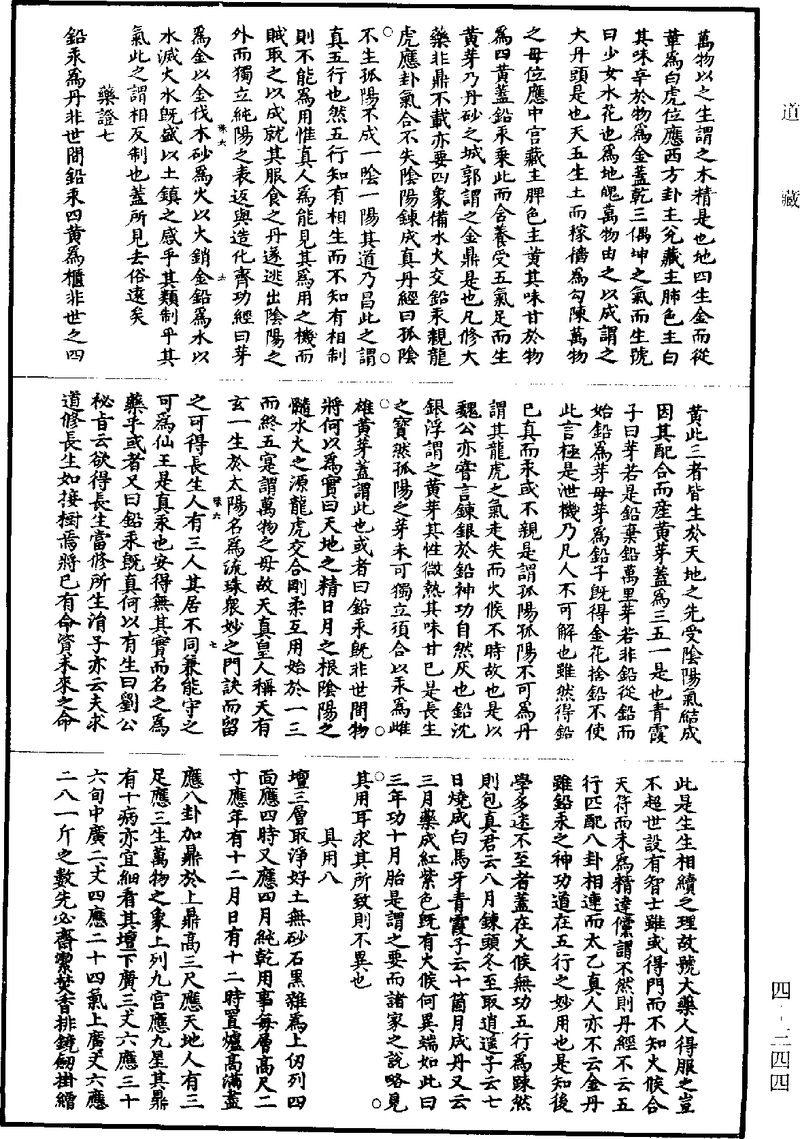 道藏
萬物以之生謂之木精是也地四生金而從
革為白虎位應西方卦主兊藏主肺色主白
其味辛於物為金蓋乾三偶坤之氣而生號
曰少女水花也為地魄萬物由之以成謂之
大丹頭是也天五生土而稼穡為勾陳萬物
之母位應中宫藏主脾色主黄其味甘於物
為四黄蓋鉛汞乗此而含養受五氣足而生
黄芽乃丹砂之城郭謂之金鼎是也凡修大
藥非鼎不載亦要四象備水火交鉛汞親龍
虎應卦氣合不失陰陽鍊成真丹經曰孤陰
不生孤陽不成一陰一陽其道乃昌此之謂
真五行也然五行知有相生而不知有相制
則不能為用惟真人為能見其為用之機而
賊取之以成就其服食之丹遂逃出陰陽之
外而獨立純陽之表返與造化齊功經曰芽
味六
為金以金伐木砂為火以火銷金鉛為水以
水滅火水既盛以土鎮之感乎其類制乎其
氣此之謂相反制也蓋所見去俗遠矣
藥證七
鉛汞為丹非世間鉛汞四黄為櫃非世之四
黄此三者皆生於天地之先受陰陽氣結成
因其配合而産黄芽蓋為三五一是也青霞
子曰芽若是鉛棄鉛萬里芽若非鉛從鉛而
始鉛為芽母芽為鉛子既得金花捨鉛不使
此言極是泄機乃凡人不可解也雖然得鉛
已真而汞或不親是謂孤陽孤陽不可為丹
謂其龍虎之氣走失而火候不時故也是以
魏公亦嘗言鍊銀於鉛神功自然灰也鉛沈
銀浮謂之黄芽其性微熱其味甘已是長生
之寳然孤陽之芽未可獨立須合以汞為雌
雄黄芽蓋謂此也或者曰鉛汞既非世間物
將何以為實曰天地之精日月之根陰陽之
髓水火之源龍虎交合剛柔互用始於一三
而終五寔謂萬物之母故天真皇人稱天有
玄一生於太陽名為流珠衆妙之門訣而留
味六 七
之可得長生人有三人其居不同兼能守之
可為仙王是真汞也安得無其實而名之為
藥乎或者又曰鉛汞既真何以有生曰劉公
秘旨云欲得長生當修所生涓子亦云夫求
道修長生如接樹焉將已有命資未來之命
此是生生相續之理故號大藥人得服之豈
不超世設有智士雖或得門而不知火候合
天符而未為精達儻謂不然則丹經不云五
行匹配八卦相連而太乙真人亦不云金丹
雖鉛汞之神功道在五行之妙用也是知後
學多迷不至者蓋在火候無功五行為踈然
則包真君云八月鍊頭冬至取逍遥子云七
日燒成白馬牙青霞子云十箇月成丹又云
三月藥成紅紫色既有火候何異端如此曰
三年功十月胎是謂之要而諸家之説略見
其用耳求其所致則不異也
具用八
壇三層取淨好土無砂石黒雜為上仞列四
面應四時又應四月純乾用事每層高尺二
寸應年有十二月日有十二時置爐高滿蓋
應八卦加鼎於上鼎高三尺應天地人有三
足應三生萬物之象上列九宫應九星其鼎
有十病亦宜細看其壇下廣三丈六應三十
六旬中廣二丈四應二十四氣上廣丈六應
二八一斤之數先必齋潔焚香排鏡劒掛繒
四-二四四